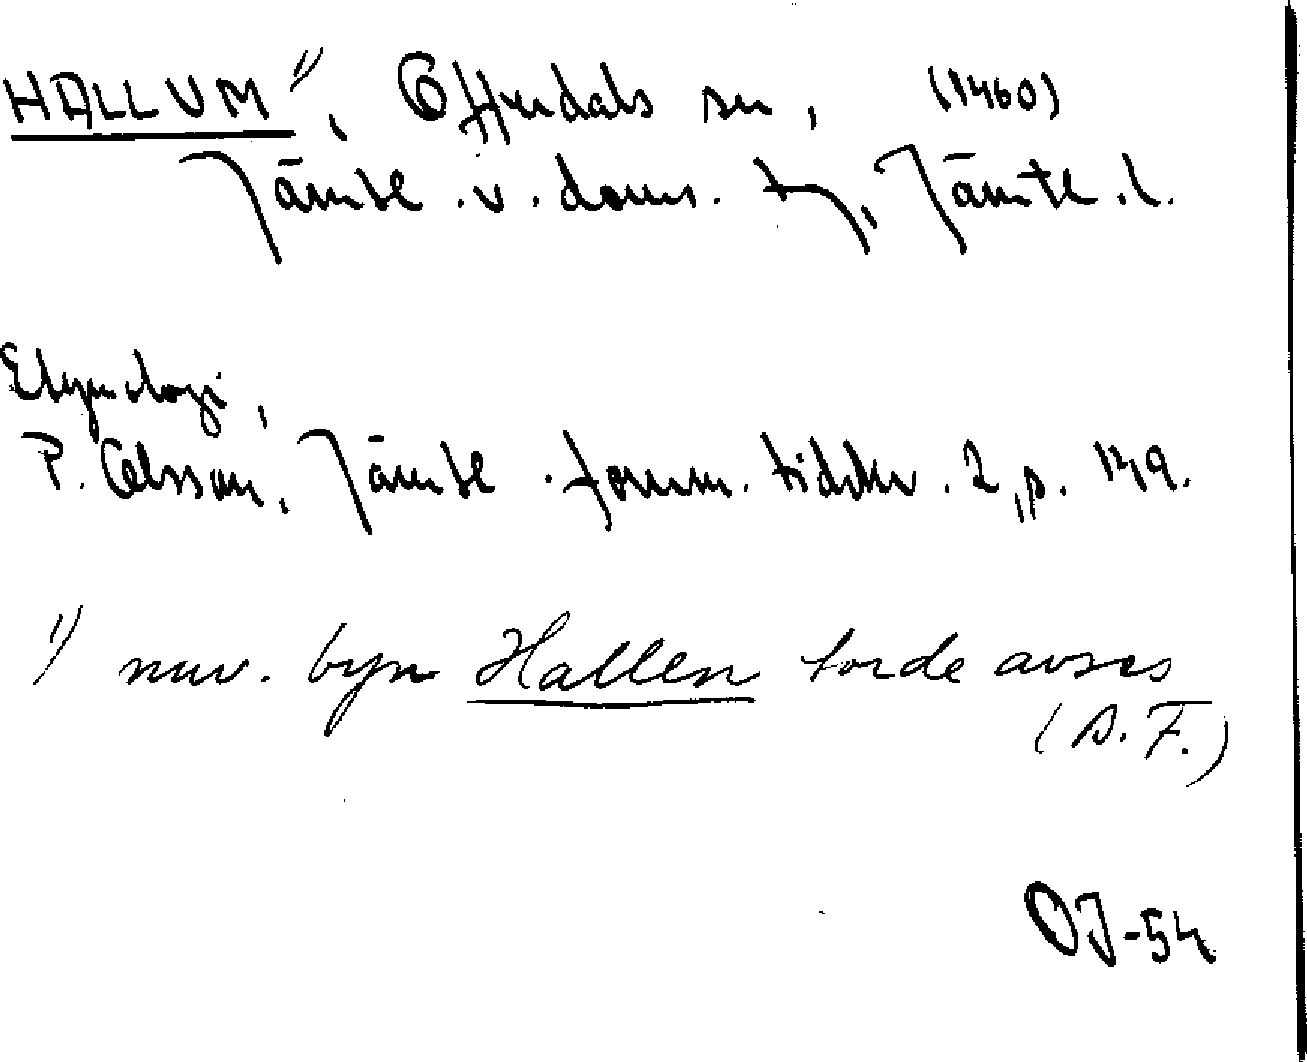 HALLUM ¹⁾, Offerdals sn, (1460)
Jämtl. v. doms. tg, Jämtl. l.
Etymologi,
P. Olsson, Jämtl. fornm. tidskr. 2, p. 149.
¹⁾ nuv. byn Hallen torde avses
(A. F.)
OJ-54